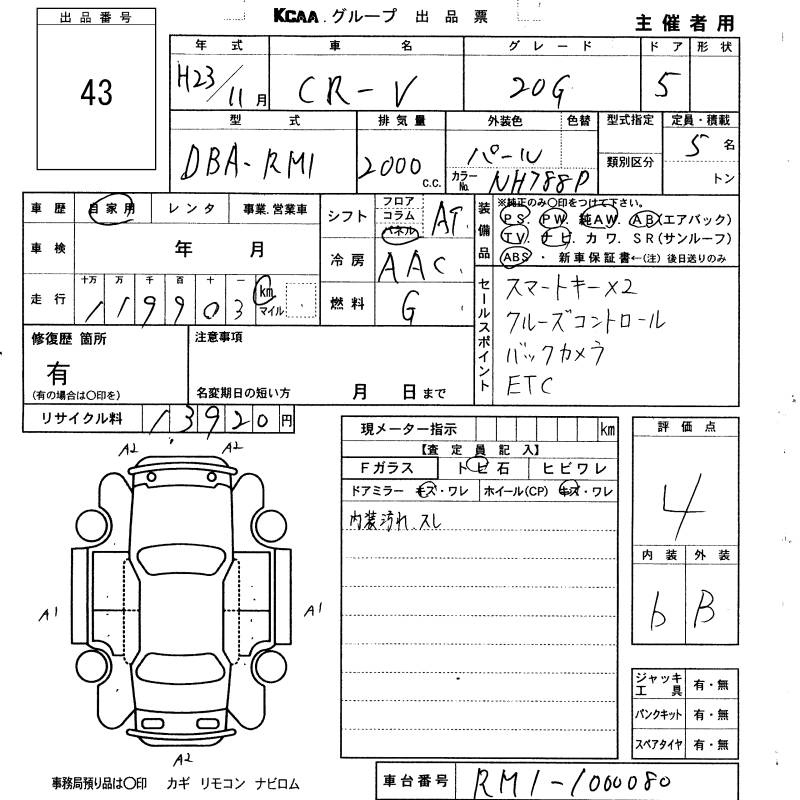 出品番号
43
KCAA グループ 出品票
主催者用
年式 車名 グレード ドア 形状
H23/11月 CR-V 20G 5
型式 排気量 外装色 色替 型式指定 定員・積載
DBA-RM1 2000 c.c. パール 類別区分 5名
カラーNo. NH788P トン
車歴 自家用 レンタ 事業.営業車
車検 年 月
走行 十万 万 千 百 十 一
119903 km マイル
シフト フロア コラム パネル AT
冷房 AAC
燃料 G
装備品
※純正のみ〇印をつけて下さい。
PS. PW. 純AW. AB(エアバック)
TV. ナビ. カワ. SR(サンルーフ)
ABS ・ 新車保証書←(注) 後日送りのみ
セールスポイント
スマートキー×2
クルーズコントロール
バックカメラ
ETC
修復歴 箇所
有
(有の場合は〇印を)
注意事項
名変期日の短い方 月 日まで
リサイクル料 13920円
A2 A2
A1 A1
A2
事務局預り品は〇印 カギ リモコン ナビロム
現メーター指示 km
【査定員記入】
Fガラス トビ石 ヒビワレ
ドアミラー キズ・ワレ ホイール(CP) キズ・ワレ
内装汚れ、スレ
評価点
4
内装 外装
b B
ジャッキ工具 有・無
パンクキット 有・無
スペアタイヤ 有・無
車台番号 RM1-1000080